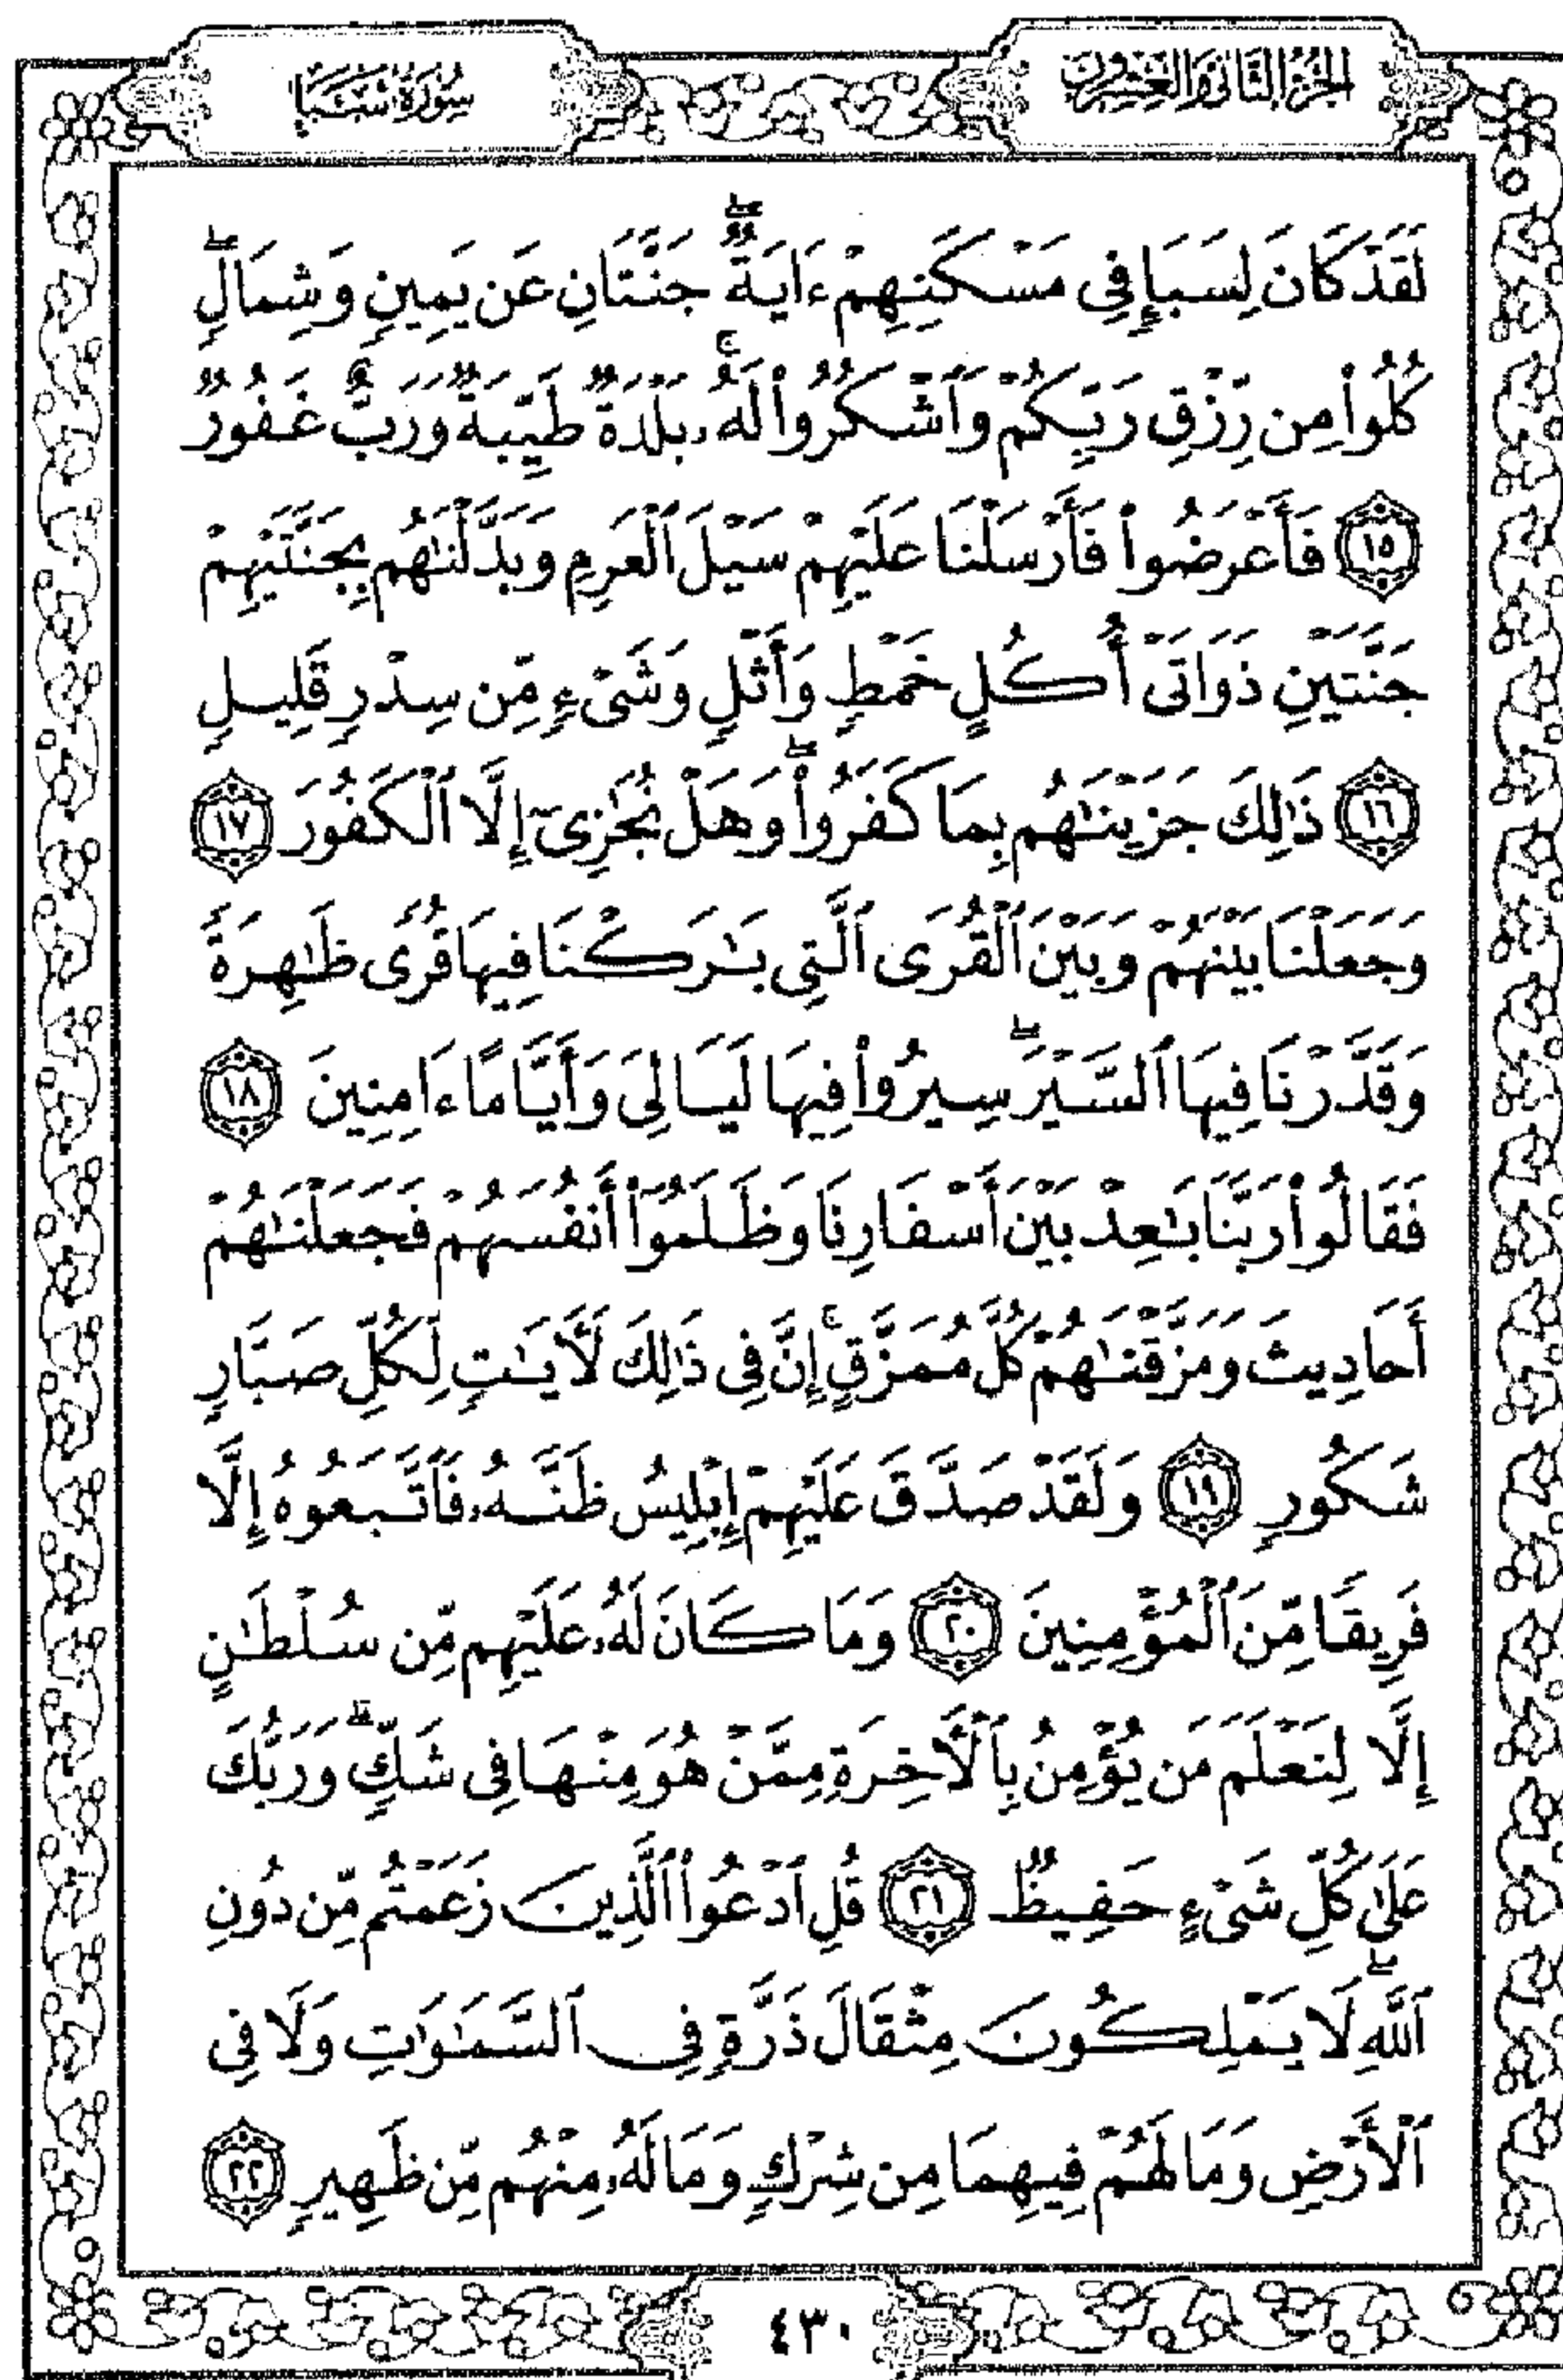 الجزء الثاني والعشرون
سورة سبأ
لَقَدْ كَانَ لِسَبَإٍ فِى مَسْكَنِهِمْ ءَايَةٌ ۖ جَنَّتَانِ عَن يَمِينٍ وَشِمَالٍ ۖ
كُلُوا۟ مِن رِّزْقِ رَبِّكُمْ وَٱشْكُرُوا۟ لَهُۥ ۚ بَلْدَةٌ طَيِّبَةٌ وَرَبٌّ غَفُورٌ
١٥ فَأَعْرَضُوا۟ فَأَرْسَلْنَا عَلَيْهِمْ سَيْلَ ٱلْعَرِمِ وَبَدَّلْنَٰهُم بِجَنَّتَيْهِمْ
جَنَّتَيْنِ ذَوَاتَىْ أُكُلٍ خَمْطٍ وَأَثْلٍ وَشَىْءٍ مِّن سِدْرٍ قَلِيلٍ
١٦ ذَٰلِكَ جَزَيْنَٰهُم بِمَا كَفَرُوا۟ ۖ وَهَلْ نُجَٰزِىٓ إِلَّا ٱلْكَفُورَ ١٧
وَجَعَلْنَا بَيْنَهُمْ وَبَيْنَ ٱلْقُرَى ٱلَّتِى بَٰرَكْنَا فِيهَا قُرًى ظَٰهِرَةً
وَقَدَّرْنَا فِيهَا ٱلسَّيْرَ ۖ سِيرُوا۟ فِيهَا لَيَالِىَ وَأَيَّامًا ءَامِنِينَ ١٨
فَقَالُوا۟ رَبَّنَا بَٰعِدْ بَيْنَ أَسْفَارِنَا وَظَلَمُوٓا۟ أَنفُسَهُمْ فَجَعَلْنَٰهُمْ
أَحَادِيثَ وَمَزَّقْنَٰهُمْ كُلَّ مُمَزَّقٍ ۚ إِنَّ فِى ذَٰلِكَ لَءَايَٰتٍ لِّكُلِّ صَبَّارٍ
شَكُورٍ ١٩ وَلَقَدْ صَدَّقَ عَلَيْهِمْ إِبْلِيسُ ظَنَّهُۥ فَٱتَّبَعُوهُ إِلَّا
فَرِيقًا مِّنَ ٱلْمُؤْمِنِينَ ٢٠ وَمَا كَانَ لَهُۥ عَلَيْهِم مِّن سُلْطَٰنٍ
إِلَّا لِنَعْلَمَ مَن يُؤْمِنُ بِٱلْءَاخِرَةِ مِمَّنْ هُوَ مِنْهَا فِى شَكٍّ ۗ وَرَبُّكَ
عَلَىٰ كُلِّ شَىْءٍ حَفِيظٌ ٢١ قُلِ ٱدْعُوا۟ ٱلَّذِينَ زَعَمْتُم مِّن دُونِ
ٱللَّهِ ۖ لَا يَمْلِكُونَ مِثْقَالَ ذَرَّةٍ فِى ٱلسَّمَٰوَٰتِ وَلَا فِى
ٱلْأَرْضِ وَمَا لَهُمْ فِيهِمَا مِن شِرْكٍ وَمَا لَهُۥ مِنْهُم مِّن ظَهِيرٍ ٢٢
٤٣٠